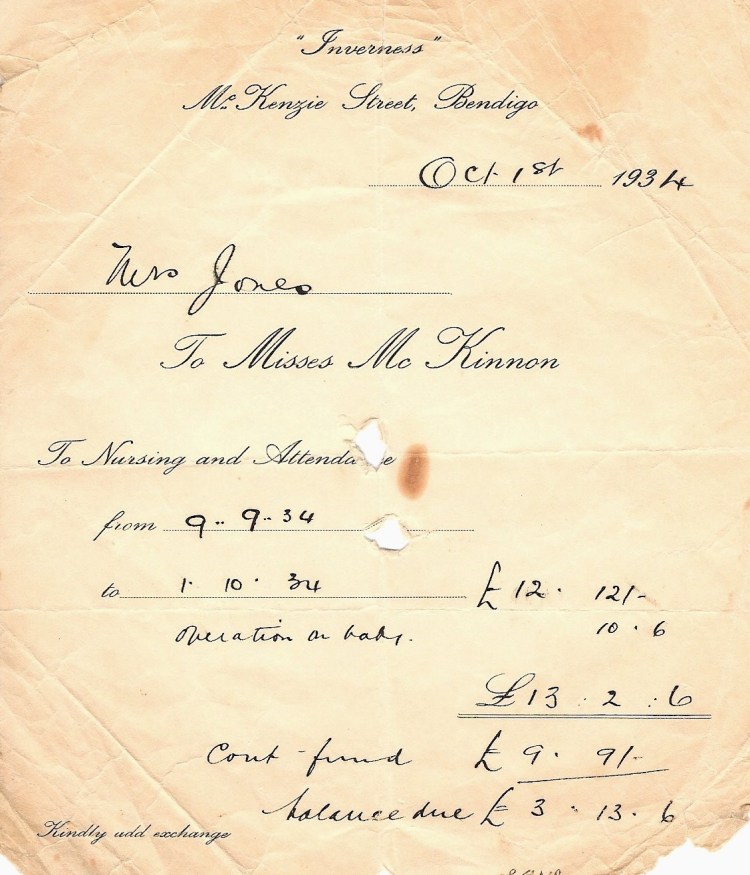 "Inverness"
McKenzie Street, Bendigo
Oct. 1st 1934
Mrs Jones
To Misses McKinnon
To Nursing and Attenda e
from 9. 9. 34
to 1. 10. 34 £12. 12/-
operation on baby. 10. 6
£13. 2. 6
Cont fund £9. 9/-
balance due £3. 13. 6
Kindly add exchange